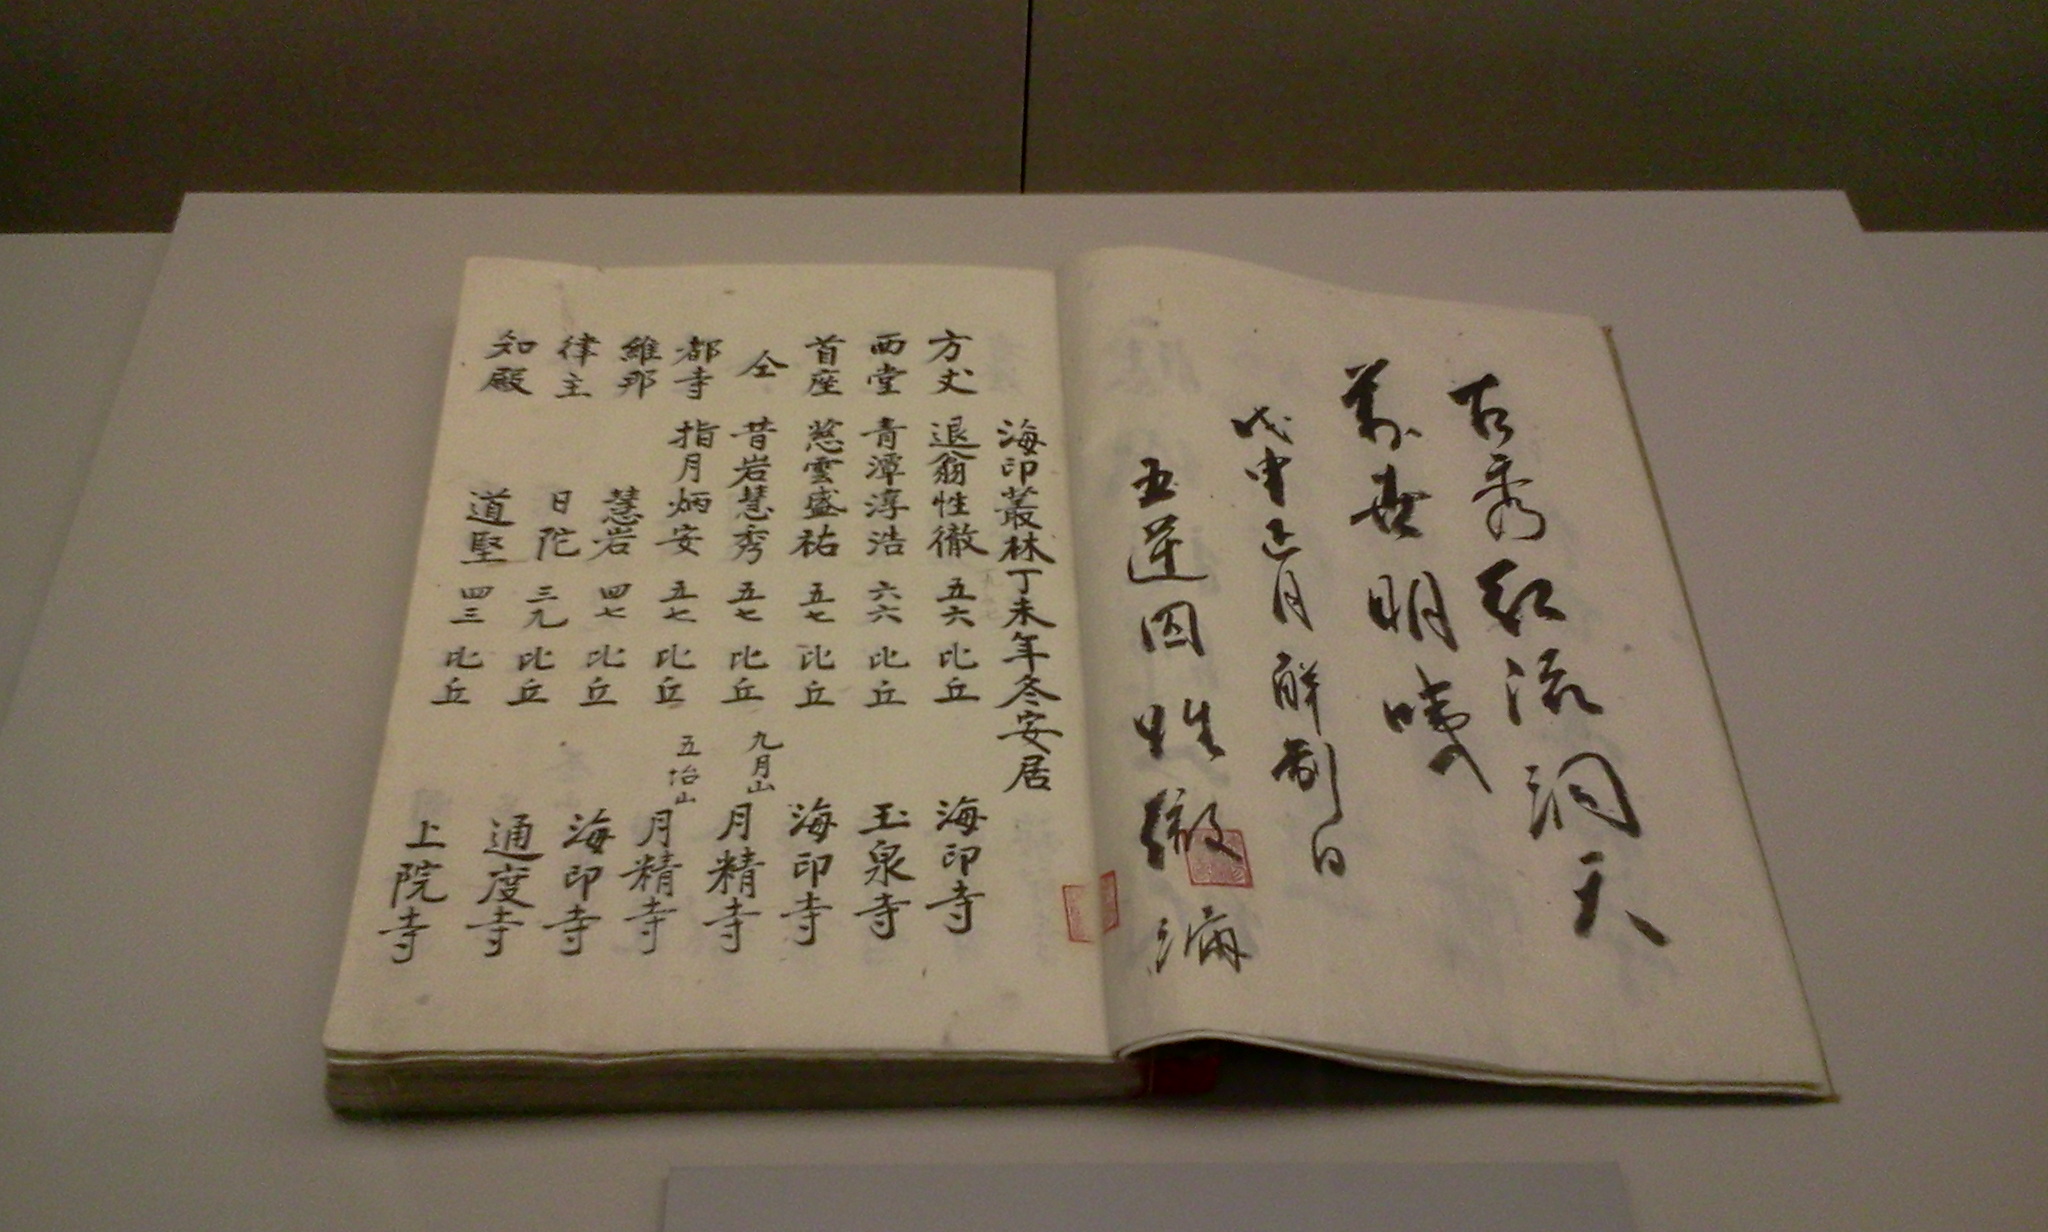 古秀紅流洞天
萬 明
戊申正月解制日
五逆囚性徹
海印叢林丁未年冬安居
方丈 退翁性徹 五六 比丘 海印寺
西堂 青潭淳浩 六六 比丘 玉泉寺
首座 慈雲盛祐 五七 比丘 海印寺
仝 昔岩慧秀 五七 比丘 九月山 月精寺
都寺 指月炳安 五七 比丘 五冶山 月精寺
維那 慧岩 四七 比丘 海印寺
律主 日陀 三九 比丘 通度寺
知殿 道堅 四三 比丘 上院寺